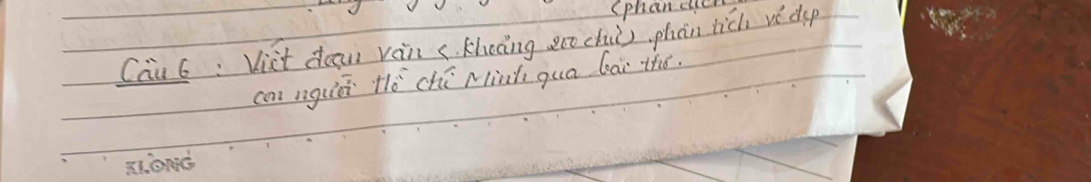 (phân tích
Câu 6 : Viết đoạn văn (khoảng 200 chữ) phân tích vẻ đẹp
con người Hồ Chí Minh qua bài thơ.
KLONG